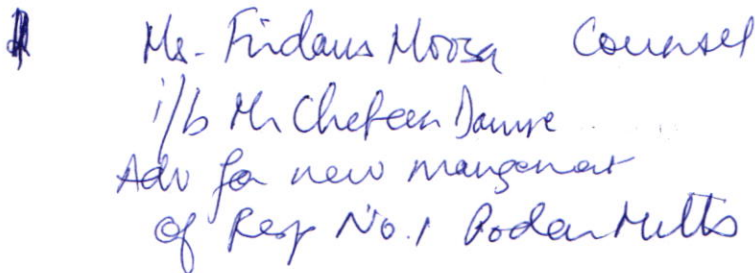 Mr. Firdaus Moosa Counsel
i/b Mr Cheteen Damre
Adv for new mangement
of Resp No. 1 Podar Mills